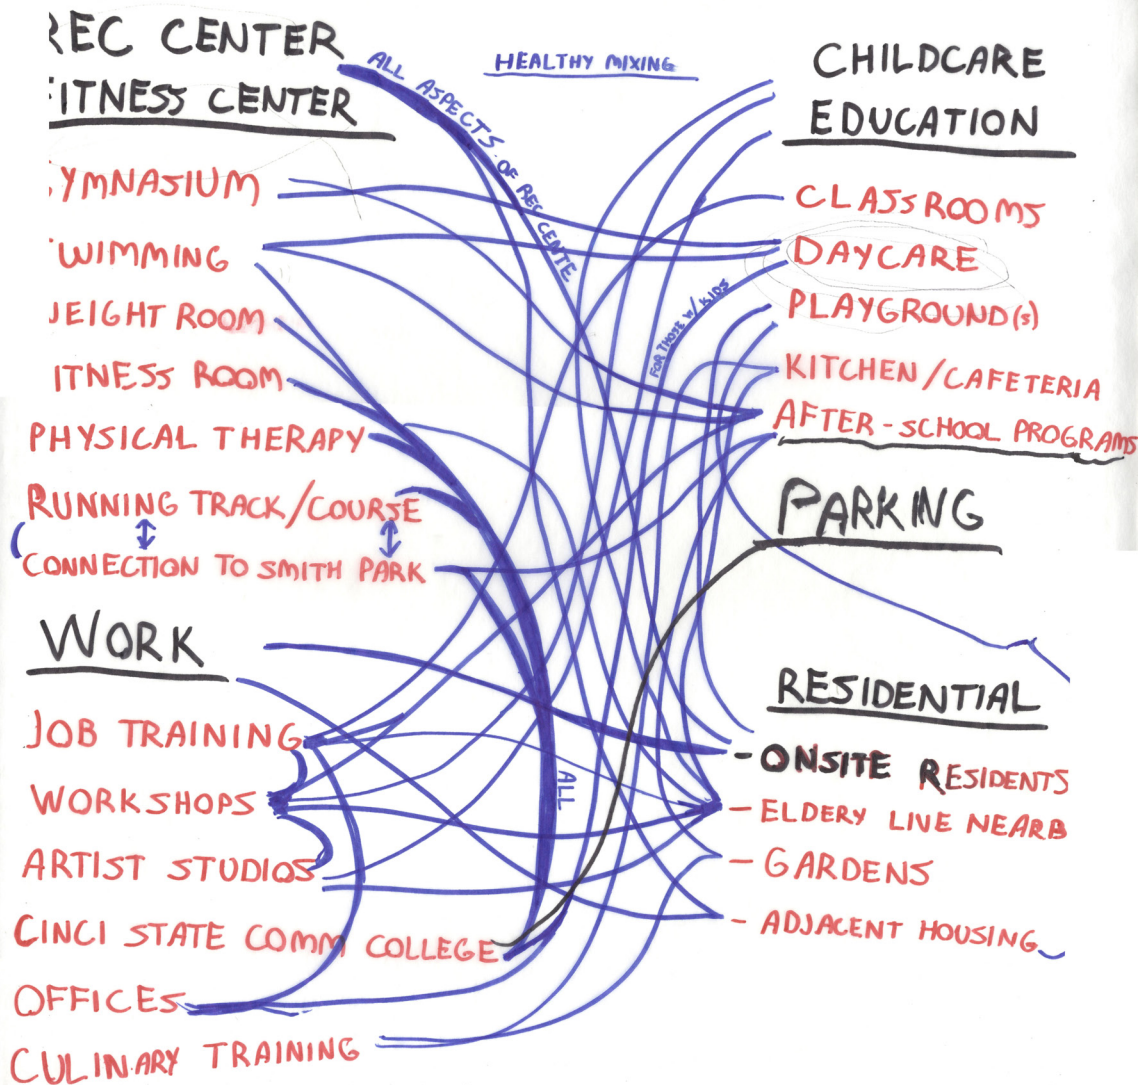 REC CENTER
FITNESS CENTER
YMNASIUM
WIMMING
EIGHT ROOM
ITNESS ROOM
PHYSICAL THERAPY
RUNNING TRACK/COURSE
CONNECTION TO SMITH PARK
WORK
JOB TRAINING
WORKSHOPS
ARTIST STUDIOS
CINCI STATE COMM COLLEGE
OFFICES
CULINARY TRAINING
HEALTHY MIXING
ALL ASPECTS OF REC CENTE
FOR THOSE W/ KIDS
ALL
CHILDCARE
EDUCATION
CLASSROOMS
DAYCARE
PLAYGROUND(s)
KITCHEN/CAFETERIA
AFTER-SCHOOL PROGRAMS
PARKING
RESIDENTIAL
- ONSITE RESIDENTS
- ELDERY LIVE NEARB
- GARDENS
- ADJACENT HOUSING